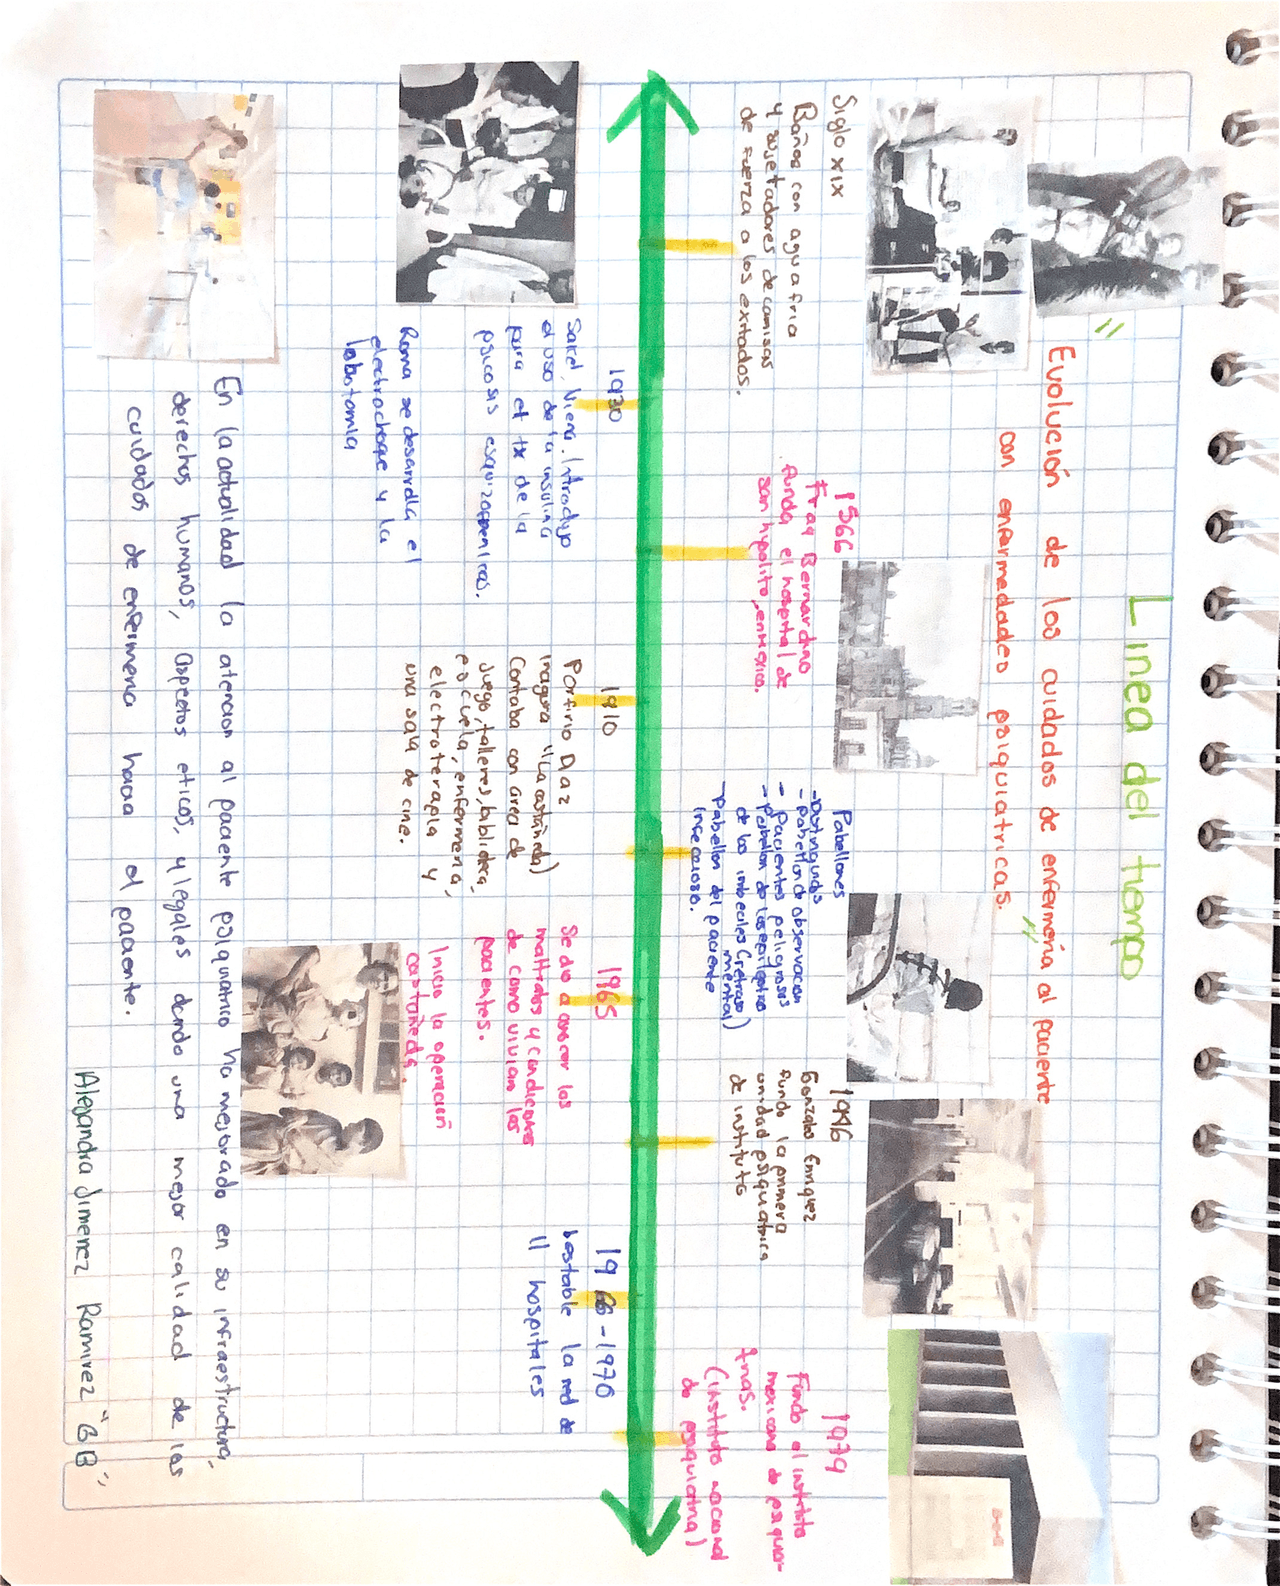 Línea del tiempo
"Evolución de los cuidados de enfermería al paciente
con enfermedades psiquiatricas."
Siglo XIX
Baños con agua fria
y sujetadores de camisas
de fuerza a los exitados.
1566
Fray Bernardino
funda el hospital de
san hipolito, en mexico.
Pabellones
-Distinguidos
-pabellon de observacion
- pacientes peligrosos
- pabellon de los epilepticos
de los imbeciles (retraso
mental)
-Pabellon del paciente
infeccioso.
1946
Gonzalo Enriquez
fundo la primera
unidad psiquiatrica
de instituto
1979
Fundo el instituto
mexicano de psiquia-
tras.
(instituto nacional
de psiquiatria)
1930
Sakel, Viena. Introdujo
el uso de la insulina
para el tx de la
psicosis esquizofrenicas.
Roma se desarrolla el
electrochoque y la
lobotomia
1910
Porfirio Diaz
inagura "La castañeda)
Contaba con area de
juego, talleres, biblioteca,
escuela, enfermeria,
electroterapia y
una sala de cine.
1965
Se dio a conocer los
maltratos y condiciones
de como vivian los
pacientes.
Inicio la operación
castañeda.
1966-1970
bestable la red de
11 hospitales
En la actualidad la atencion al paciente psiquiatrico ha mejorado en su infraestructura,
derechos humanos, aspetos eticos, y legales dando una mejor calidad de los
cuidados de enfermeria hacia el paciente.
Alejandra Jimenez Ramirez "6B"